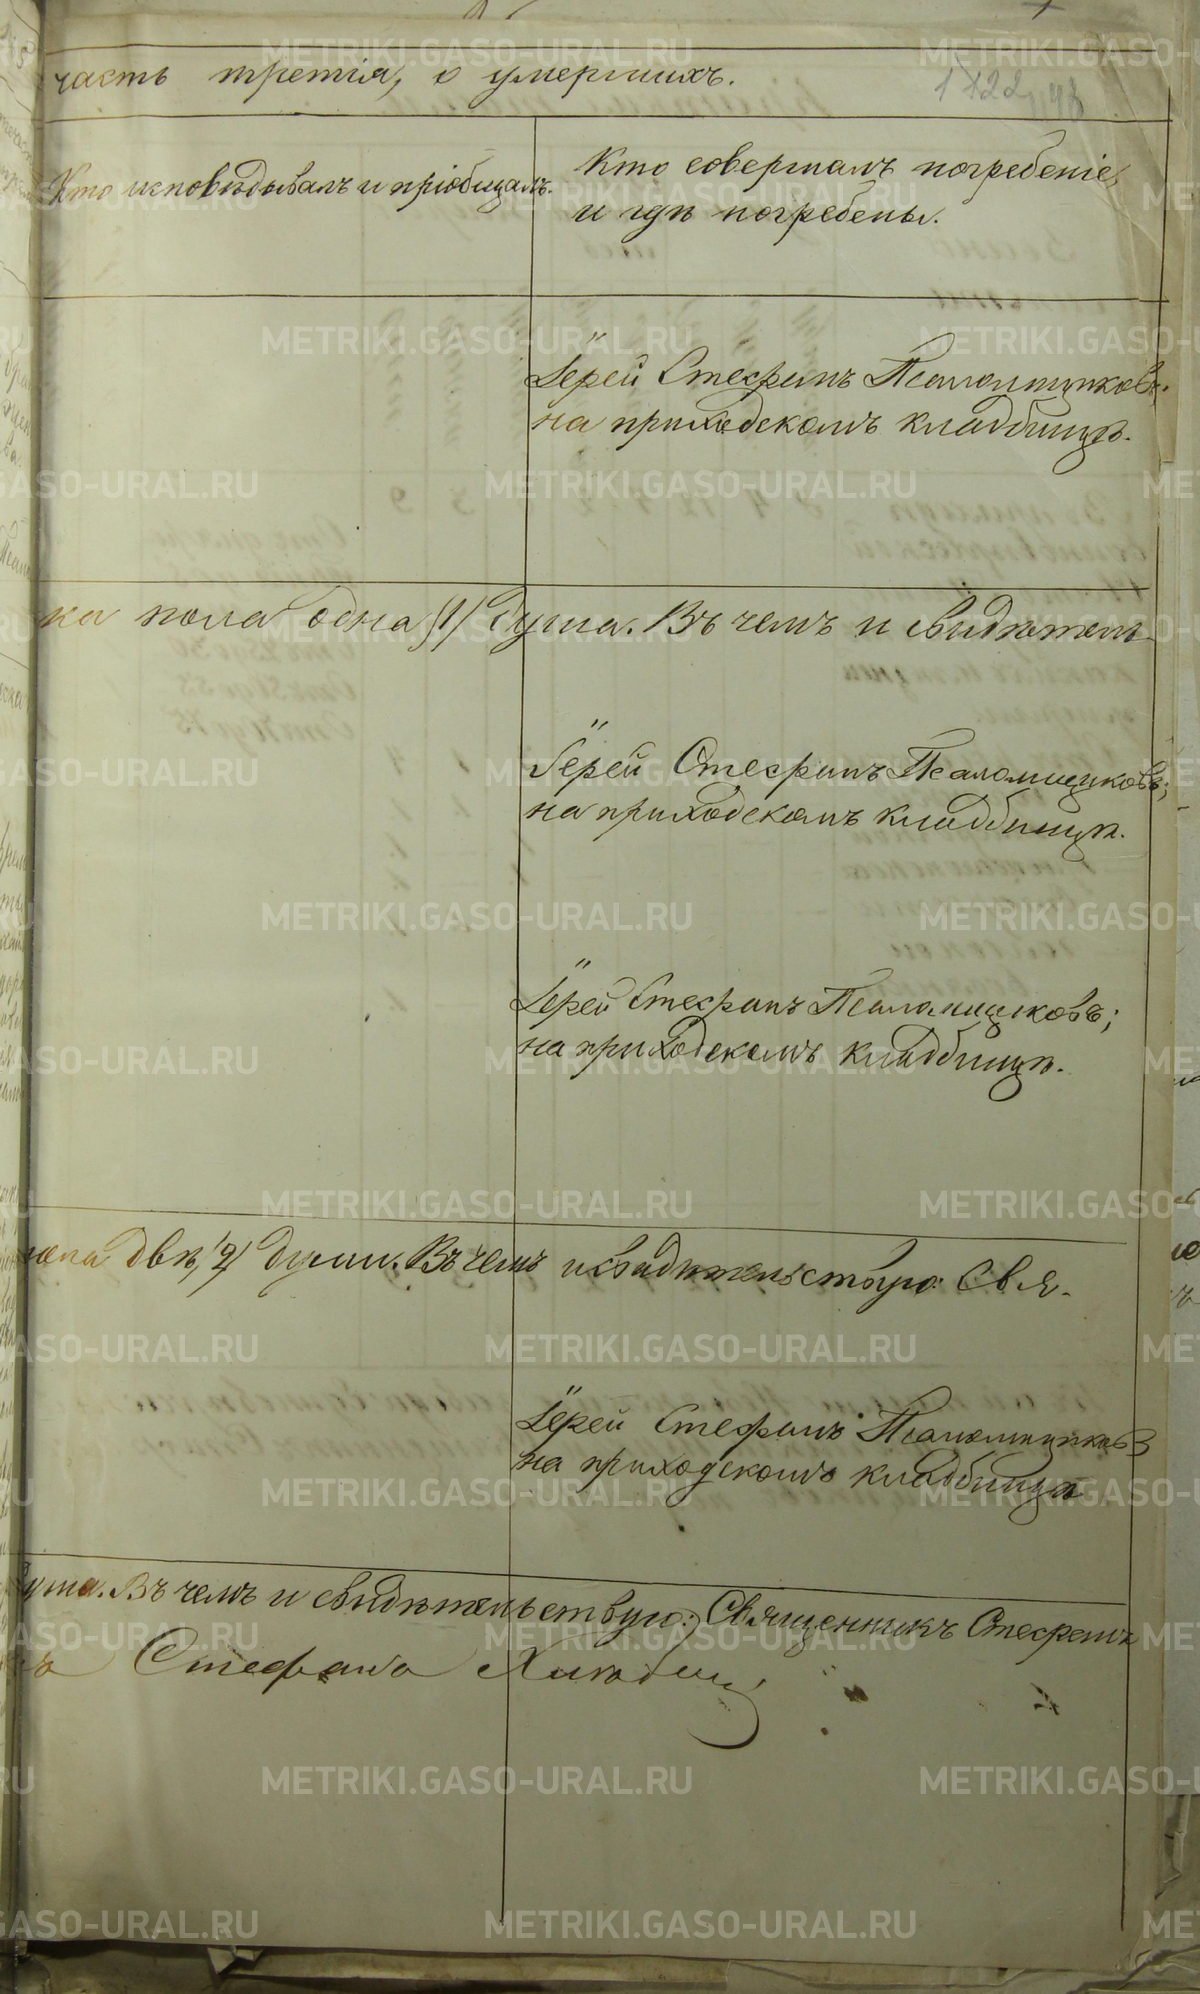 часть третія, о умершихъ.
Кто исповѣдывалъ и пріобщалъ.
Кто совершалъ погребеніе,
и гдѣ погребены.
Іерей Стефанъ Псаломщиковъ.
на приходскомъ кладбищѣ.
ка пола одна /1/ душа. Въ чемъ и свидѣтель
Іерей Стефанъ Псаломщиковъ;
на приходскомъ кладбищѣ.
Іерей Стефанъ Псаломщиковъ;
на приходскомъ кладбищѣ.
пола двѣ /2/ души. Въ чемъ и свидѣтельствую: Свя-
Іерей Стефанъ Псаломщиковъ
на приходскомъ кладбищѣ
уша. Въ чемъ и свидѣтельствую: Священникъ Стефанъ
ъ Стефанъ
METRIKI.GASO-URAL.RU